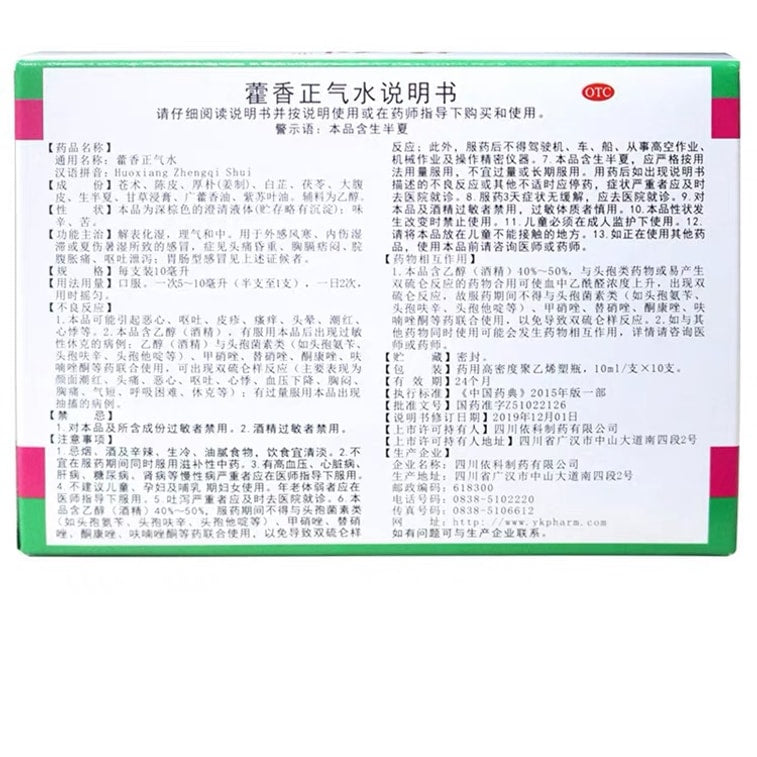 藿香正气水说明书
OTC
请仔细阅读说明书并按说明使用或在药师指导下购买和使用。
警示语：本品含生半夏
【药品名称】
通用名称：藿香正气水
汉语拼音：Huoxiang Zhengqi Shui
【成　份】苍术、陈皮、厚朴(姜制)、白芷、茯苓、大腹
皮、生半夏、甘草浸膏、广藿香油、紫苏叶油。辅料为乙醇。
【性　状】本品为深棕色的澄清液体(贮存略有沉淀)；味
辛、苦。
【功能主治】解表化湿，理气和中。用于外感风寒、内伤湿
滞或夏伤暑湿所致的感冒，症见头痛昏重、胸膈痞闷、脘
腹胀痛、呕吐泄泻；胃肠型感冒见上述证候者。
【规　格】每支装10毫升
【用法用量】口服。一次5～10毫升（半支至1支），一日2次，
用时摇匀。
【不良反应】
1.本品可能引起恶心、呕吐、皮疹、瘙痒、头晕、潮红、
心悸等。2.本品含乙醇（酒精），有服用本品后出现过敏
性休克的病例；乙醇（酒精）与头孢菌素类（如头孢氨苄、
头孢呋辛、头孢他啶等）、甲硝唑、替硝唑、酮康唑、呋
喃唑酮等药联合使用，可出现双硫仑样反应（主要表现为
颜面潮红、头痛、恶心、呕吐、心悸、血压下降、胸闷、
胸痛、气短、呼吸困难、休克等）；有大量服用本品出现
抽搐的病例。
【禁　忌】
1.对本品及所含成份过敏者禁用。2.酒精过敏者禁用。
【注意事项】
1.忌烟、酒及辛辣、生冷、油腻食物，饮食宜清淡。2.不
宜在服药期间同时服用滋补性中药。3.有高血压、心脏病、
肝病、糖尿病、肾病等慢性病严重者应在医师指导下服用。
4.不建议儿童、孕妇及哺乳期妇女使用，年老体弱者应在
医师指导下服用。5.吐泻严重者应及时去医院就诊。6.本
品含乙醇（酒精）40%～50%，服药期间不得与头孢菌素类
（如头孢氨苄、头孢呋辛、头孢他啶等）、甲硝唑、替硝
唑、酮康唑、呋喃唑酮等药联合使用，以免导致双硫仑样
反应；此外，服药后不得驾驶机、车、船、从事高空作业、
机械作业及操作精密仪器。7.本品含生半夏，应严格按用
法用量服用，不宜过量或长期服用。用药后如出现说明书
描述的不良反应或其他不适时应停药，症状严重者应及时
去医院就诊。8.服药3天症状无缓解，应去医院就诊。9.对
本品及酒精过敏者禁用，过敏体质者慎用。10.本品性状发
生改变时禁止使用。11.儿童必须在成人监护下使用。12.
请将本品放在儿童不能接触的地方。13.如正在使用其他药
品，使用本品前请咨询医师或药师。
【药物相互作用】
1.本品含乙醇（酒精）40%～50%，与头孢类药物或易产生
双硫仑反应的药物合用可使血中乙酰醛浓度上升，出现双
硫仑反应，故服药期间不得与头孢菌素类（如头孢氨苄、
头孢呋辛、头孢他啶等）、甲硝唑、替硝唑、酮康唑、呋
喃唑酮等药联合使用，以免导致双硫仑样反应。2.如与其
他药物同时使用可能会发生药物相互作用，详情请咨询医
师或药师。
【贮　藏】密封。
【包　装】药用高密度聚乙烯塑瓶，10ml/支×10支。
【有 效 期】24个月
【执行标准】《中国药典》2015年版一部
【批准文号】国药准字Z51022126
【说明书修订日期】2019年12月01日
【上市许可持有人】四川依科制药有限公司
【上市许可持有人地址】四川省广汉市中山大道南四段2号
【生产企业】
企业名称：四川依科制药有限公司
生产地址：四川省广汉市中山大道南四段2号
邮政编码：618300
电话号码：0838-5102220
传真号码：0838-5106612
网　　址：http://www.ykpharm.com
如有问题可与生产企业联系。